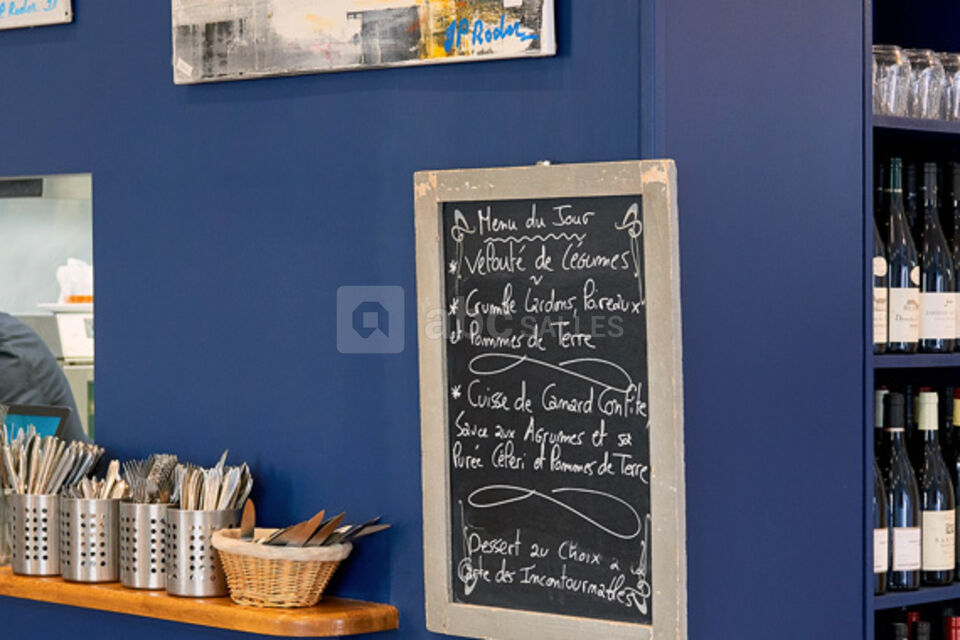 JP Rodor
Menu du Jour
* Velouté de Légumes
* Crumble Lardons, Poireaux
et Pommes de Terre
* Cuisse de Canard Confite
Sauce aux Agrumes et sa
Purée Céleri et Pommes de Terre
Dessert au Choix à la
Carte des Incontournables
abc SALLES